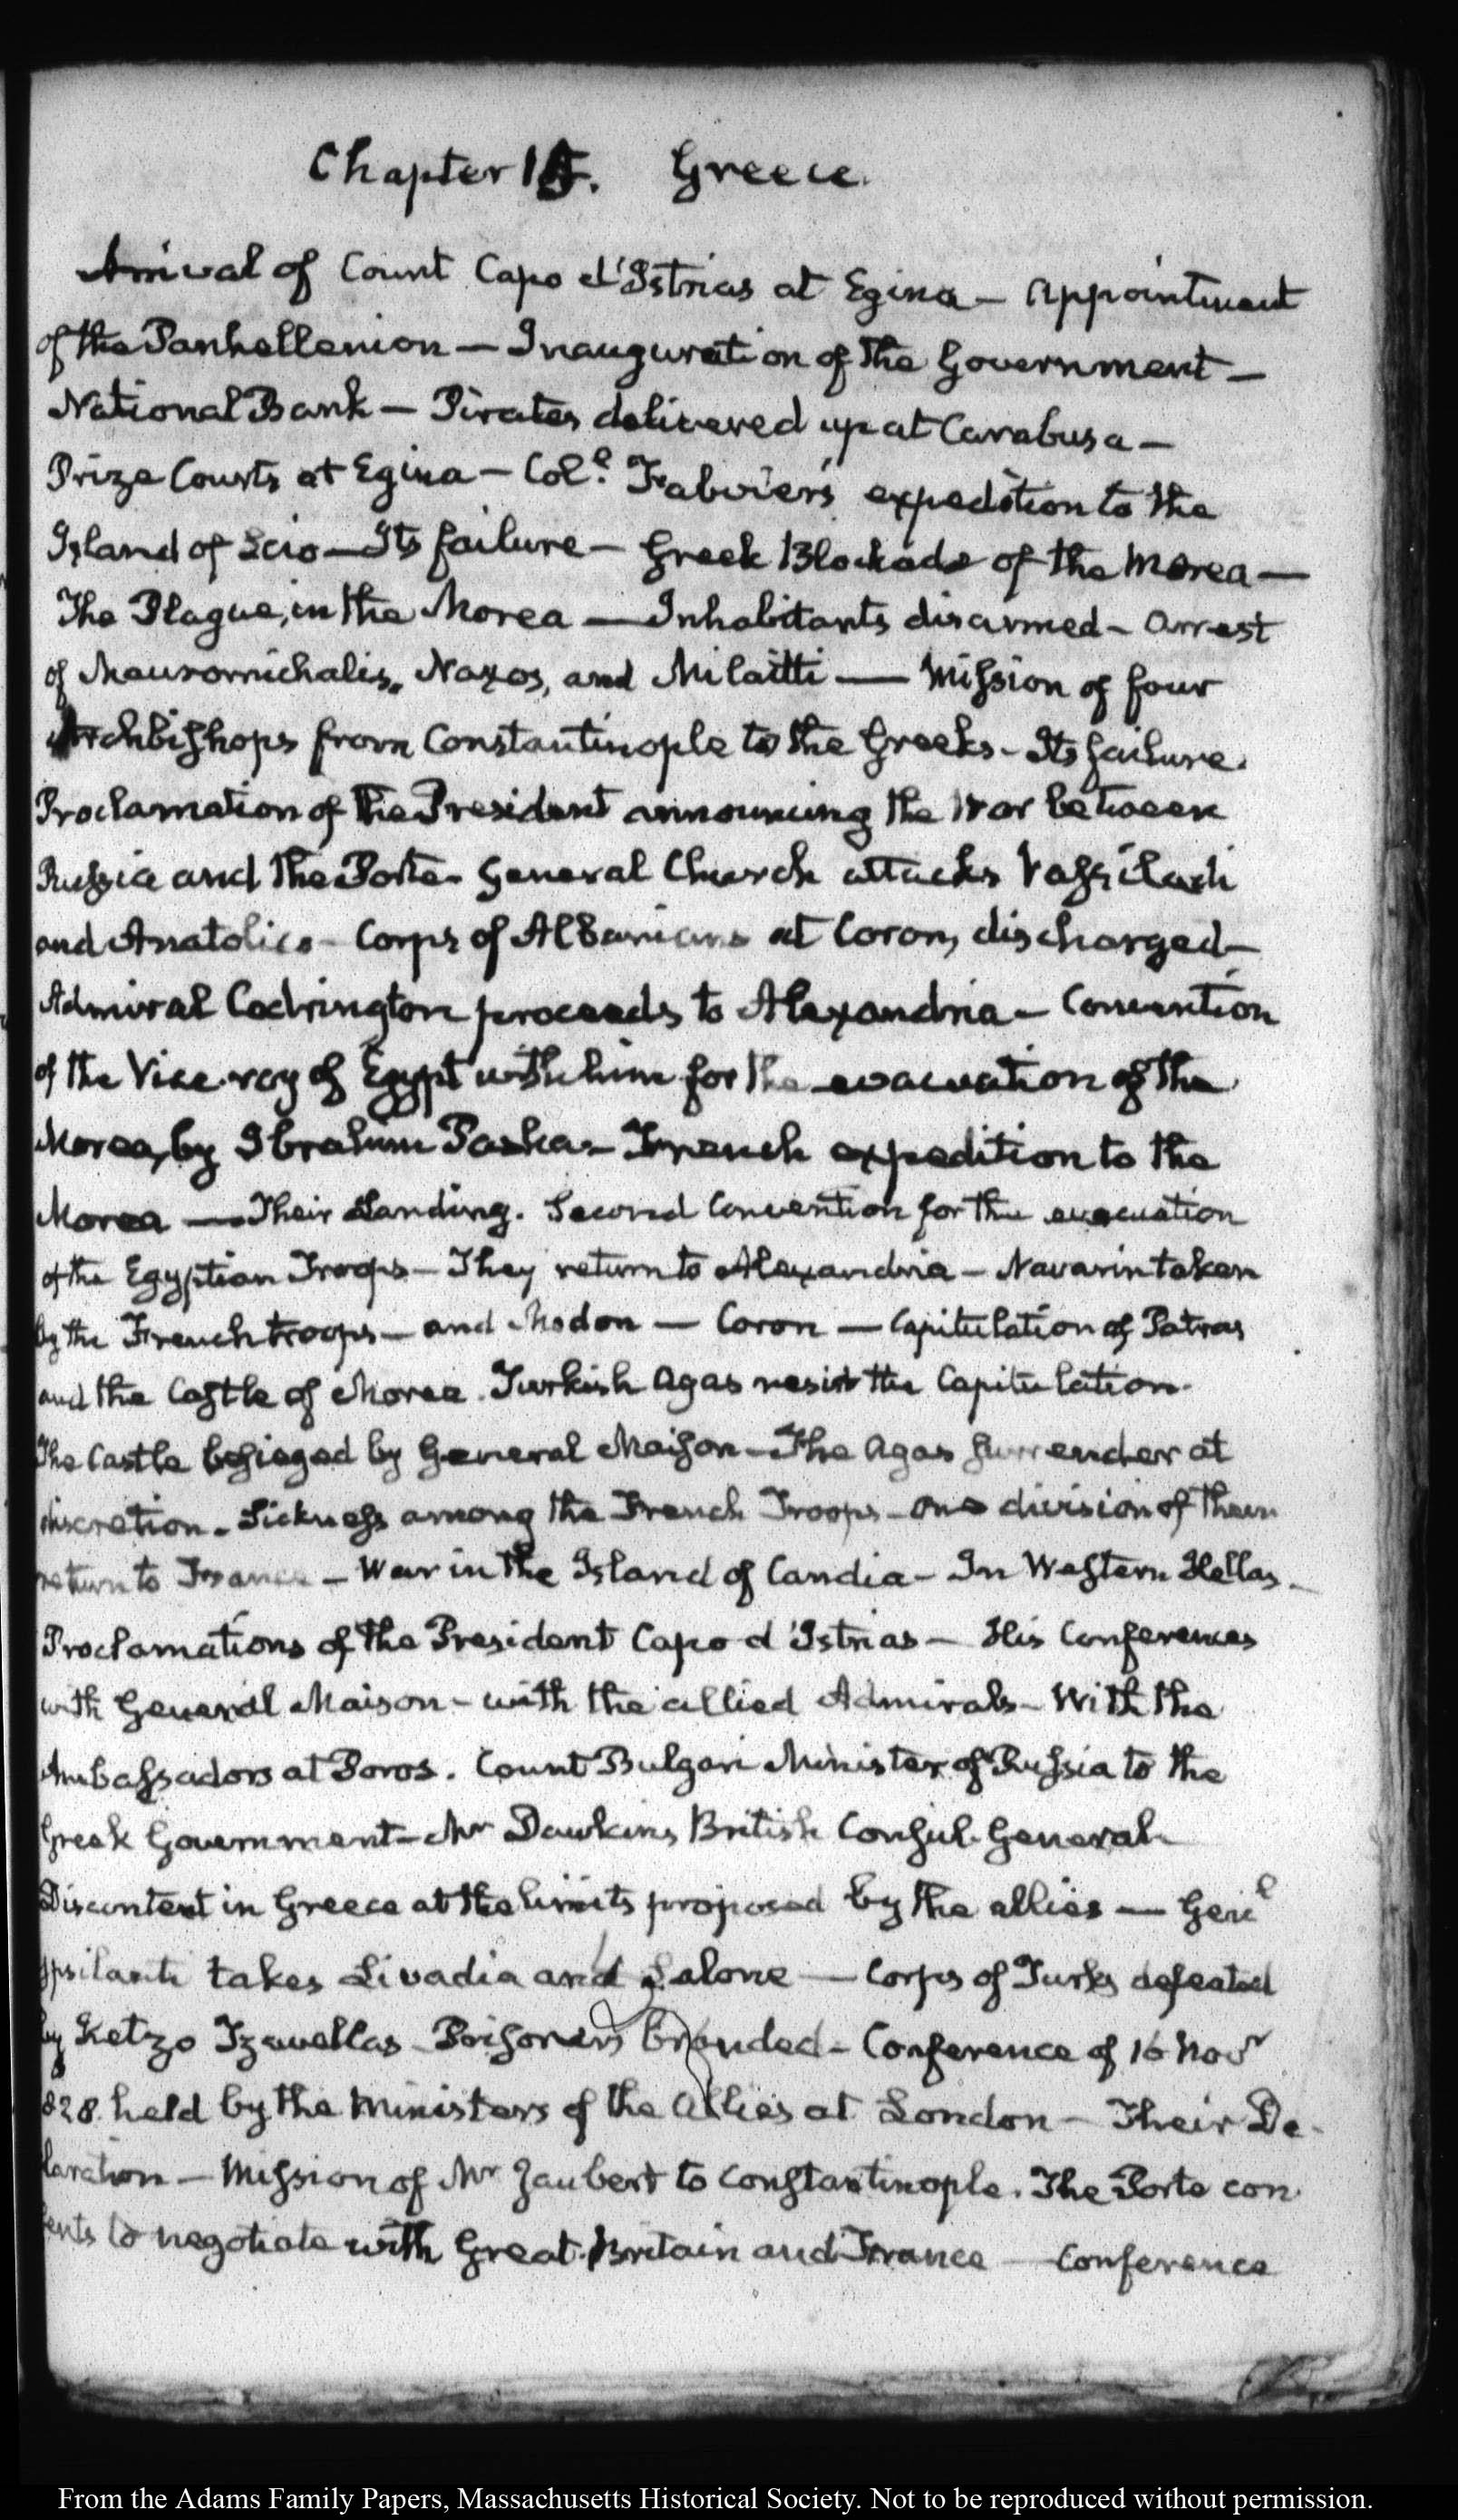 Chapter 15. Greece.
Arrival of Count Capo d'Istrias at Egina — Appointment
of the Panhellenion — Inauguration of the Government —
National Bank — Pirates delivered up at Carabusa —
Prize Courts at Egina — Col.l Fabvier's expedition to the
Island of Scio — Its failure — Greek Blockade of the Morea —
The Plague, in the Morea — Inhabitants disarmed — Arrest
of Mauromichalis, Naxos, and Milaitti — Mission of four
Archbishops from Constantinople to the Greeks — Its failure.
Proclamation of the President announcing the War between
Russia and the Porte — General Church attacks Vassiladi
and Anatolico — Corps of Albanians at Coron, discharged —
Admiral Codrington proceeds to Alexandria — Convention
of the Vice-roy of Egypt with him for the evacuation of the
Morea, by Ibrahim Pasha — French expedition to the
Morea — Their Landing. Second Convention for the evacuation
of the Egyptian Troops — They return to Alexandria — Navarin taken
by the French troops — and Modon — Coron — Capitulation of Patras
and the Castle of Morea. Turkish Agas resist the Capitulation.
The Castle besieged by General Maison — The Agas surrender at
discretion. Sickness among the French Troops — One division of them
return to France — War in the Island of Candia — In Western Hellas —
Proclamations of the President Capo d'Istrias — His Conferences
with General Maison — with the allied Admirals — With the
Ambassadors at Poros. Count Bulgari Minister of Russia to the
Greek Government — Mr Dawkins British Consul-General
Discontent in Greece at the limits proposed by the allies — Genl
Ypsilanti takes Livadia and Salone — Corps of Turks defeated
by Ketzo Tzavellas Prisoners branded — Conference of 16 Novr
828. held by the Ministers of the Allies at London — Their De-
laration — Mission of Mr Jaubert to Constantinople. The Porte con-
sents to negotiate with Great-Britain and France — Conference
From the Adams Family Papers, Massachusetts Historical Society. Not to be reproduced without permission.